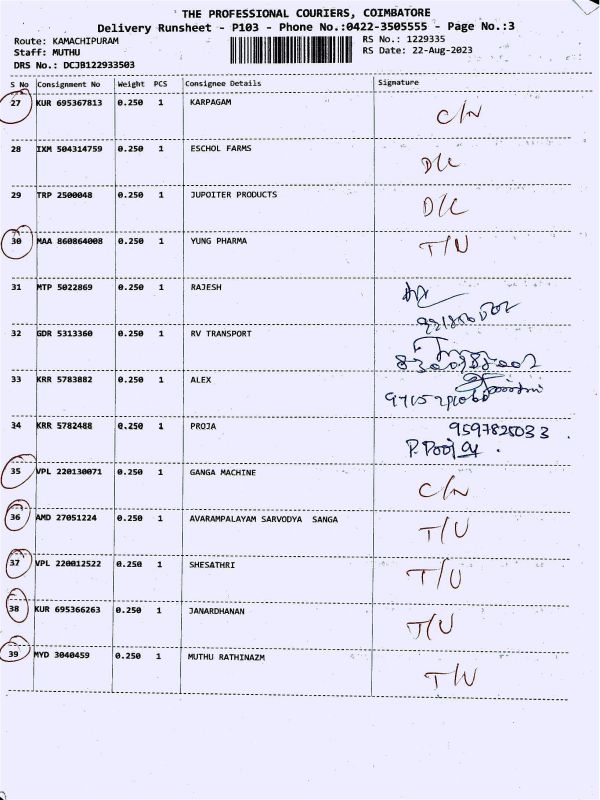 THE PROFESSIONAL COURIERS, COIMBATORE
Delivery Runsheet - P103 - Phone No.:0422-3505555 - Page No.:3
Route: KAMACHIPURAM RS No.: 1229335
Staff: MUTHU RS Date: 22-Aug-2023
DRS No.: DCJB122933503
S No Consignment No Weight PCS Consignee Details Signature
27 KUR 695367813 0.250 1 KARPAGAM C/N
28 IXM 504314759 0.250 1 ESCHOL FARMS D/L
29 TRP 2500048 0.250 1 JUPOITER PRODUCTS D/L
30 MAA 860864008 0.250 1 YUNG PHARMA T/U
31 MTP 5022869 0.250 1 RAJESH
32 GDR 5313360 0.250 1 RV TRANSPORT
33 KRR 5783882 0.250 1 ALEX
34 KRR 5782488 0.250 1 PROJA 9597825033
35 VPL 220130071 0.250 1 GANGA MACHINE C/N
36 AMD 27051224 0.250 1 AVARAMPALAYAM SARVODYA SANGA T/U
37 VPL 220012522 0.250 1 SHESATHRI T/U
38 KUR 695366263 0.250 1 JANARDHANAN T/U
39 MYD 3040459 0.250 1 MUTHU RATHINAZM T/U